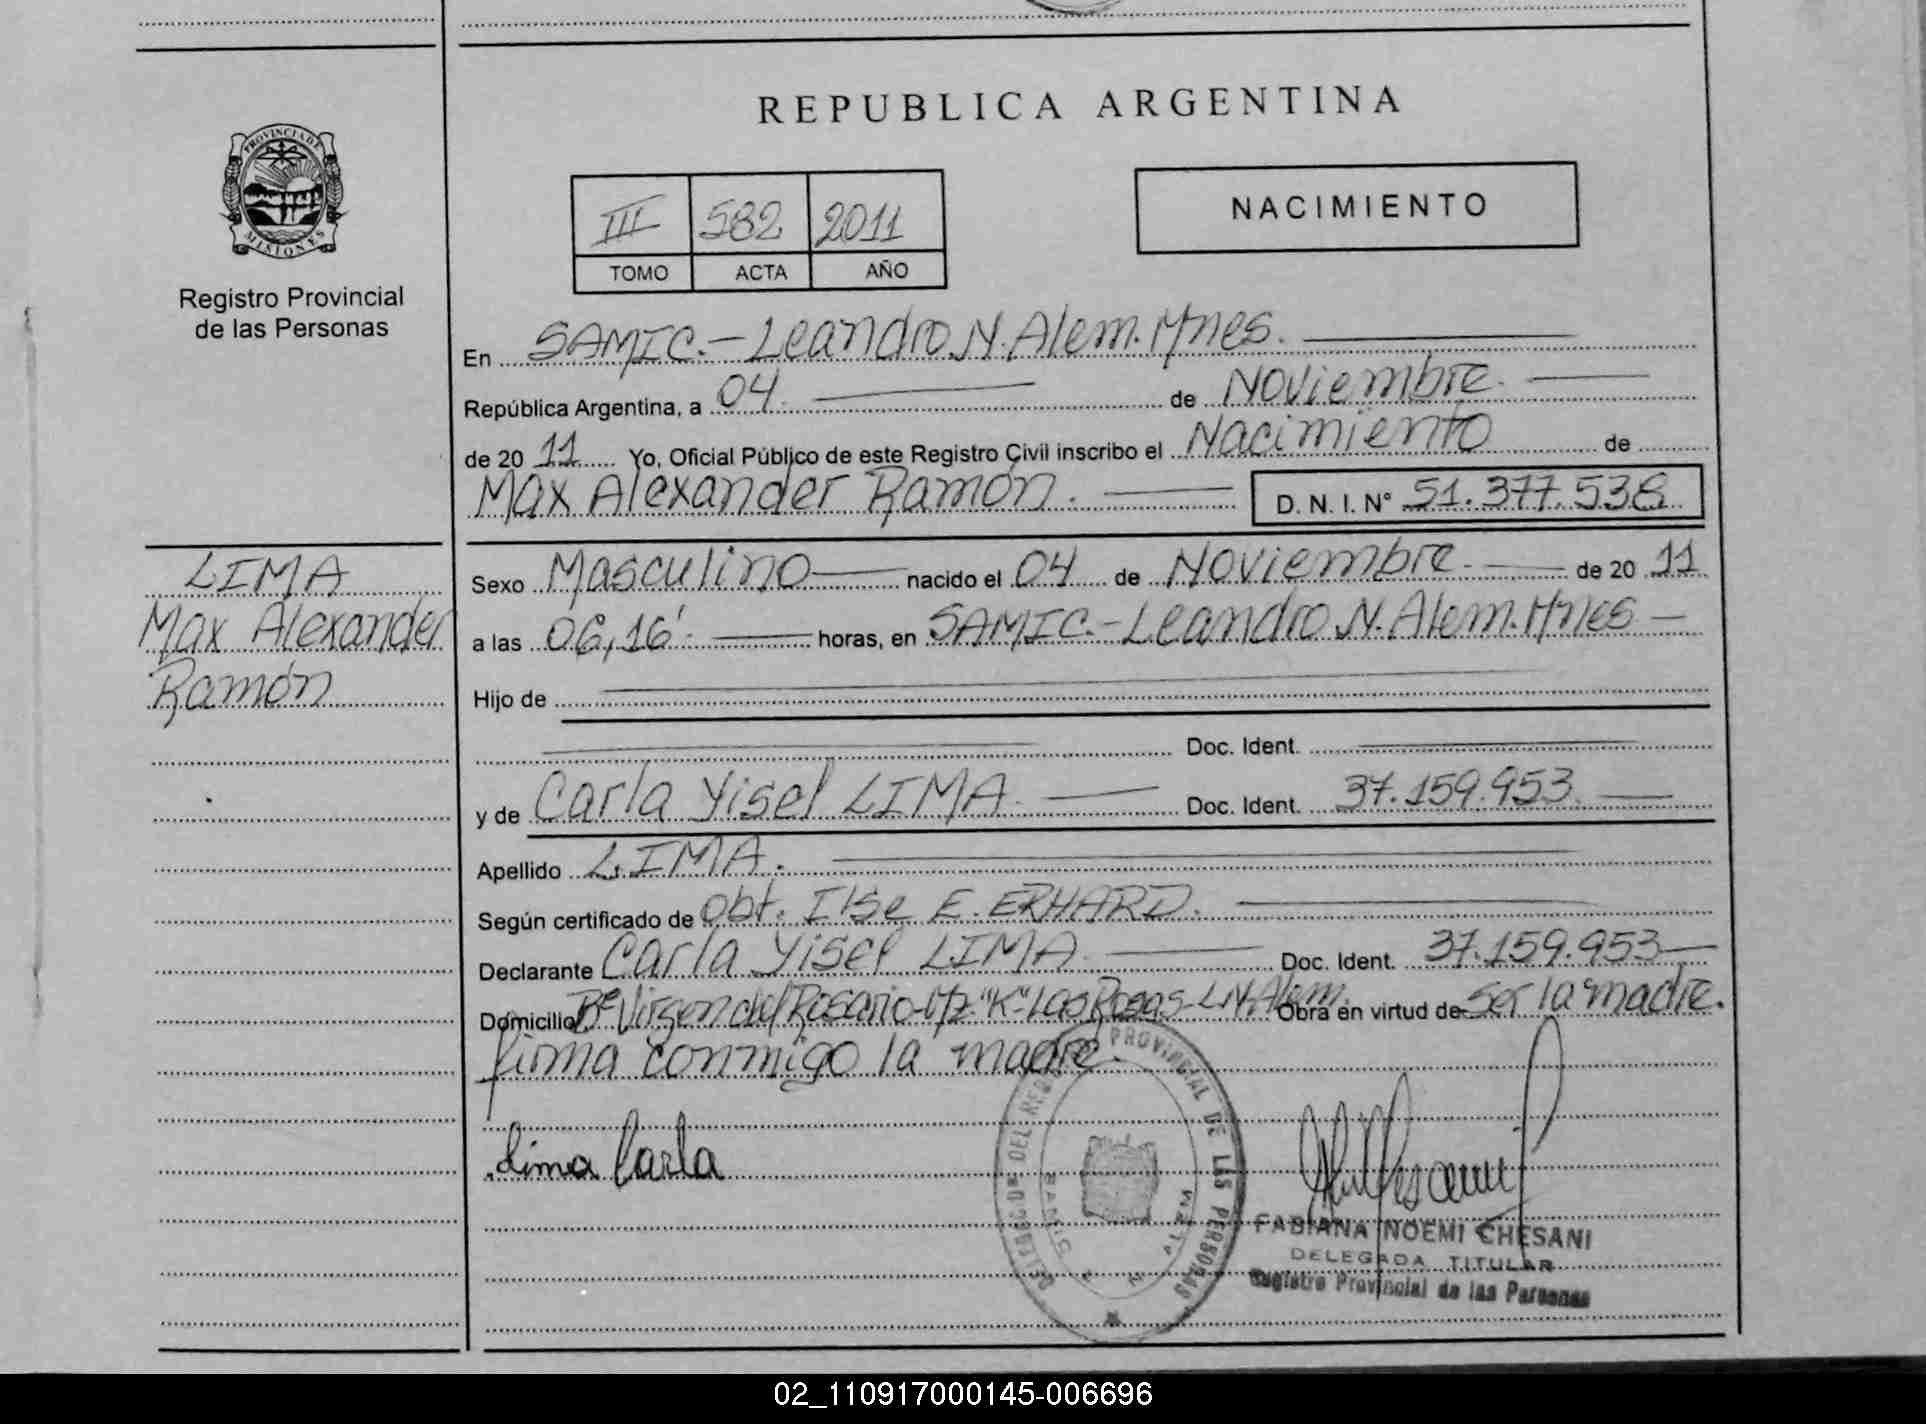 REPUBLICA ARGENTINA
PROVINCIA DE
MISIONES
Registro Provincial
de las Personas
III 582 2011
TOMO ACTA AÑO
NACIMIENTO
En SAMIC.- Leandro N. Alem. Mnes.
República Argentina, a 04. de Noviembre.
de 20 11 Yo, Oficial Público de este Registro Civil inscribo el Nacimiento de
Max Alexander Ramón. D. N. I. Nº 51.377.538
LIMA
Max Alexander
Ramón
Sexo Masculino nacido el 04 de Noviembre. de 20 11
a las 06,16'. horas, en SAMIC.- Leandro N. Alem. Mnes
Hijo de
Doc. Ident.
y de Carla Yisel LIMA. Doc. Ident. 37.159.953.
Apellido LIMA.
Según certificado de Obt. Ilse E. ERHARD.
Declarante Carla Yisel LIMA. Doc. Ident. 37.159.953
Domicilio Bº Virgen del Rosario-Mz."K"-Las Rosas-L.N.Alem. Obra en virtud de ser la madre.
firma conmigo la madre.
Lima Carla
PROVINCIAL DE LAS PERSONAS
FABIANA NOEMI CHESANI
DELEGADA TITULAR
Registro Provincial de las Personas
02_110917000145-006696